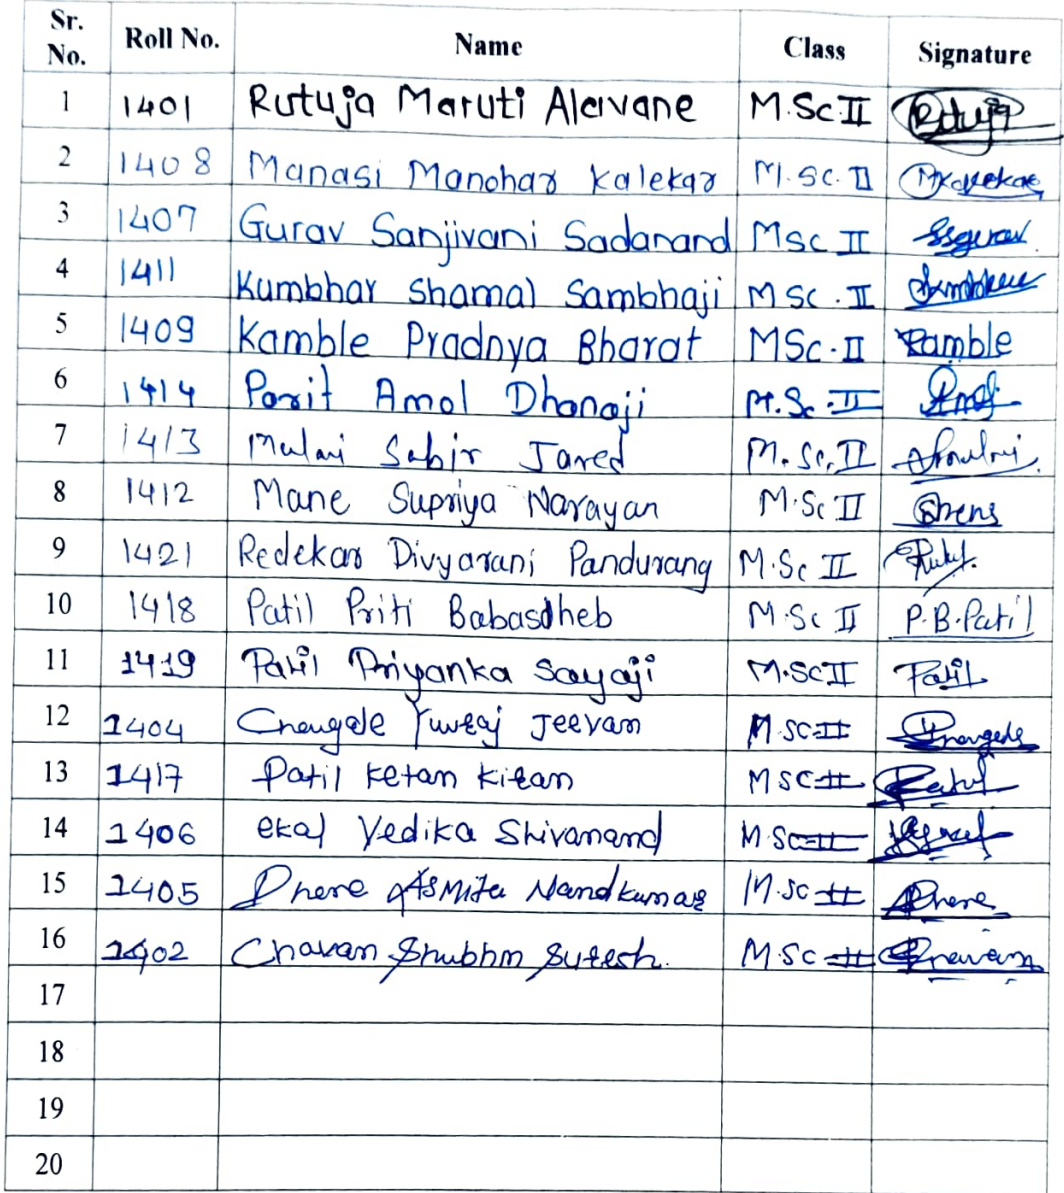 Sr. No. Roll No. Name Class Signature
1 1401 Rutuja Maruti Alavane M.Sc.II Rutuja
2 1408 Manasi Manohar Kalekar M.Sc.II Mkalekar
3 1407 Gurav Sanjivani Sadanand MSc II SSgurav
4 1411 Kumbhar Shamal Sambhaji MSc.II
5 1409 Kamble Pradnya Bharat MSc.II Kamble
6 1414 Parit Amol Dhanaji M.Sc.II
7 1413 Mulani Sabir Javed M.Sc.II
8 1412 Mane Supriya Narayan M.Sc II
9 1421 Redekar Divyarani Pandurang M.Sc II
10 1418 Patil Priti Babasaheb M.Sc II P.B.Patil
11 1419 Patil Priyanka Sayaji M.SC II Patil
12 1404 Chougale Yuvraj Jeevan M.SC II
13 1417 Patil Ketan Kiran MSC II Patil
14 1406 ekal Vedika Shivanand M.SC II
15 1405 Dhere Asmita Nandkumar M.SC II Dhere
16 1402 Chavan Shubhm Suresh. M.SC II Chavan
17
18
19
20